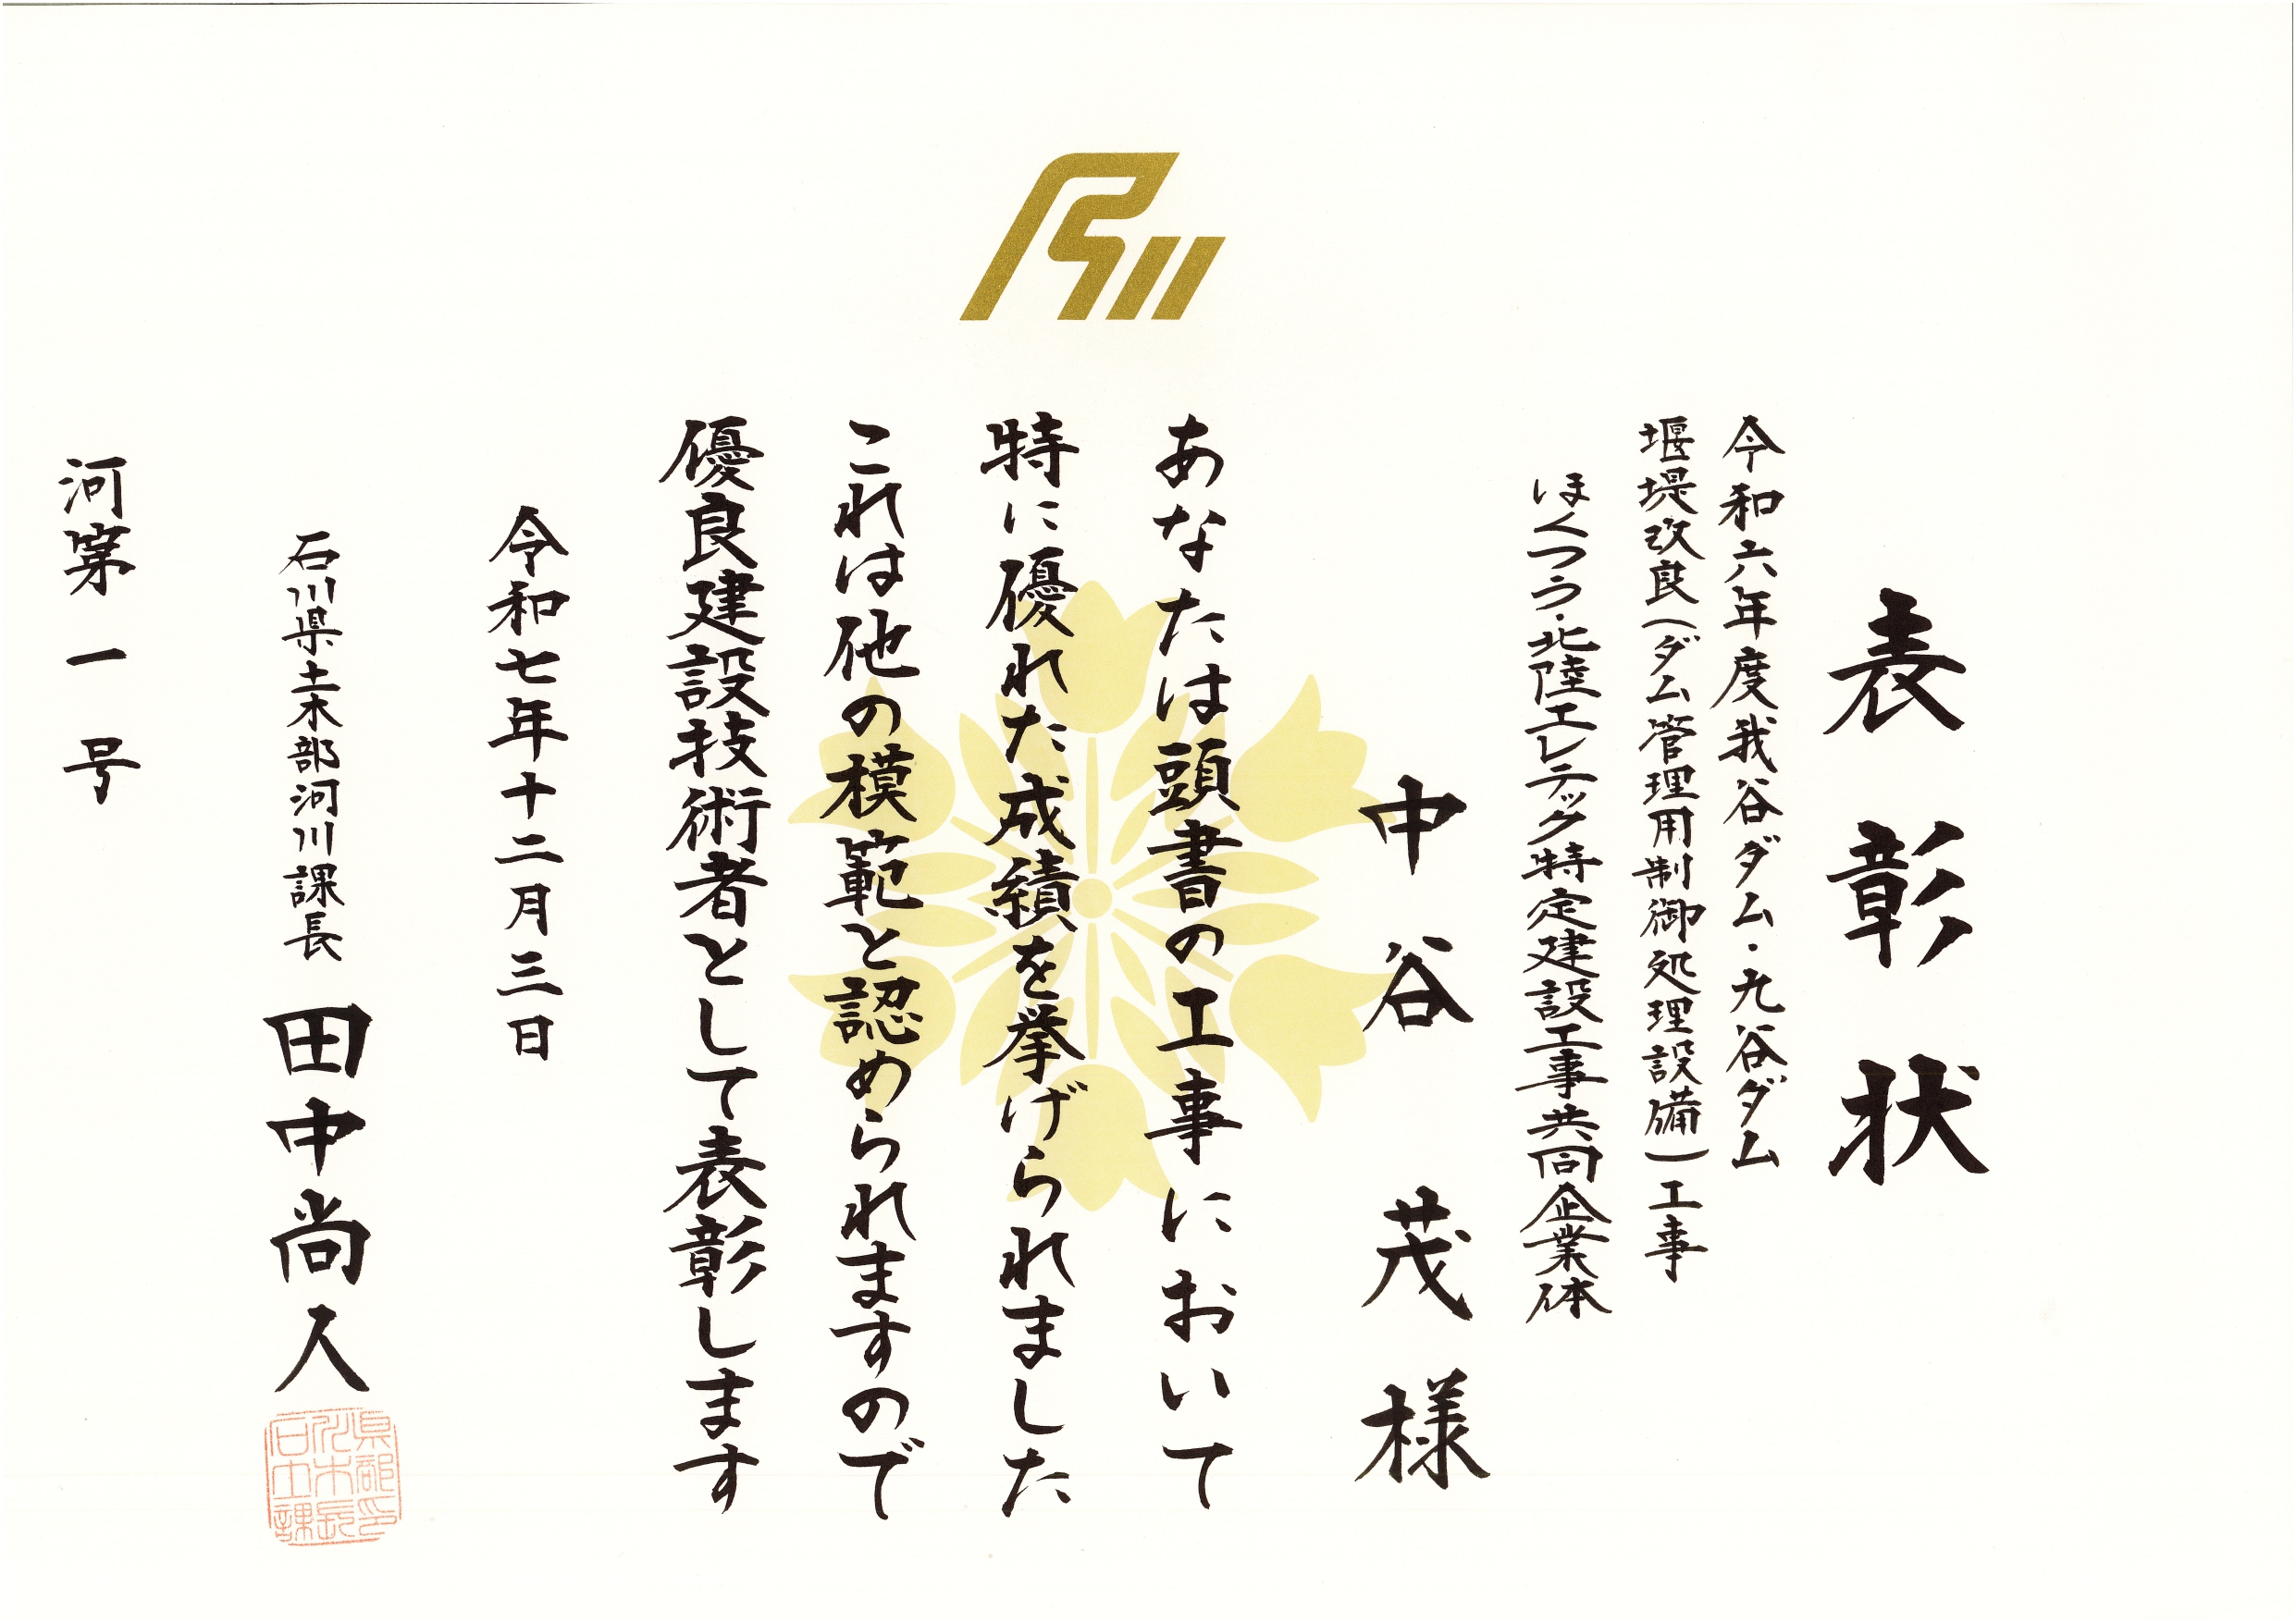 表彰状
令和六年度我谷ダム・九谷ダム
堰堤改良(ダム管理用制御処理設備)工事
ほくつう・北陸エレテック特定建設工事共同企業体
中谷茂様
あなたは頭書の工事において
特に優れた成績を挙げられました
これは他の模範と認められますので
優良建設技術者として表彰します
令和七年十二月三日
石川県土木部河川課長 田中尚人
河第一号